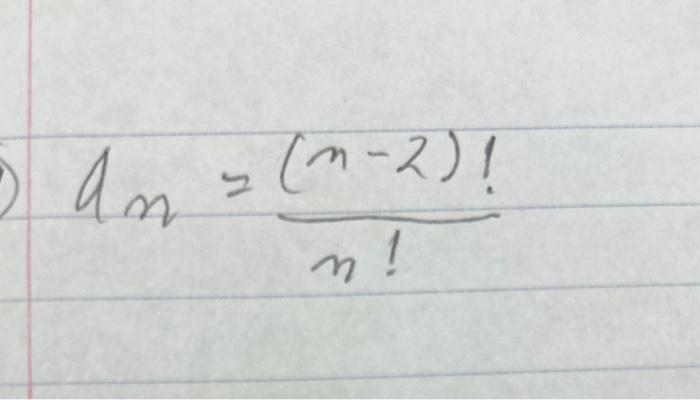 ) a_n = (n-2)!
n!